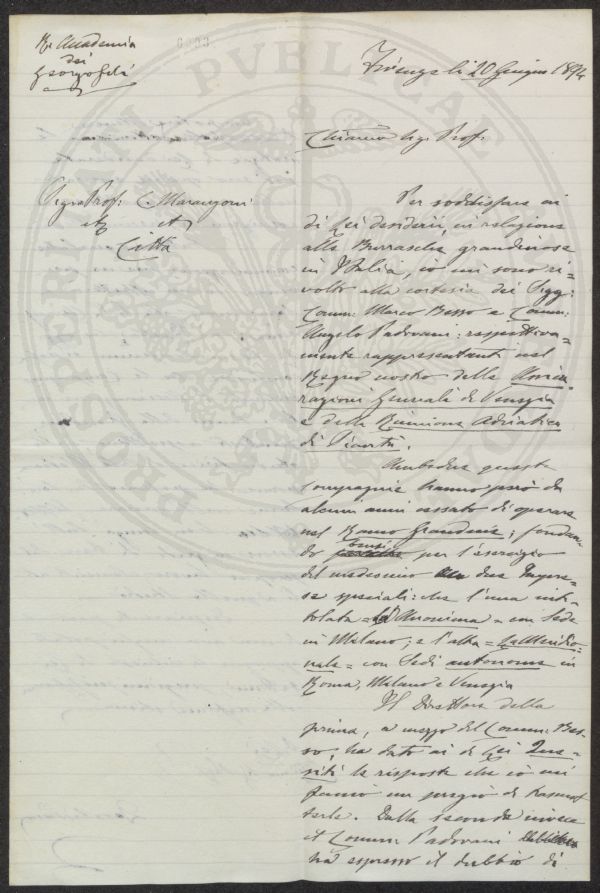 R. Accademia
dei
Georgofili
Firenze li 20 Giugno 1894
Chiarmo Sig. Prof.
Sigr Prof. C. Marangoni
Città
Per soddisfare ai
di Lei desideri in relazione
alle Burrasche grandinose
in Italia, io mi sono ri=
volto alla cortesia dei Sigg:
Comm: Marco Besso e Comm:
Angelo Padovani: respettiva=
mente rappresentanti nel
Regno nostro delle Assicu
razioni Generali di Venezia
e della Riunione Adriatica
di Sicurtà.
Ambedue queste
Compagnie hanno però da
alcuni anni cessato di operare
nel Ramo Grandine; fondan=
do per l'esercizio
del medesimo due Impre=
se speciali: che l'una inti=
tolata = L'Anonima = con Sede
in Milano; e l'altra = La Meridio=
nale = con Sedi autonome in
Roma, Milano e Venezia
Il Direttore della
prima, a mezzo del Comm: Bes=
so, ha dato ai di Lei Que=
siti le risposte che io mi
fanno un pregio di
. Dalla seconda invece
il Comm: Padovani
ha espresso il dubbio di